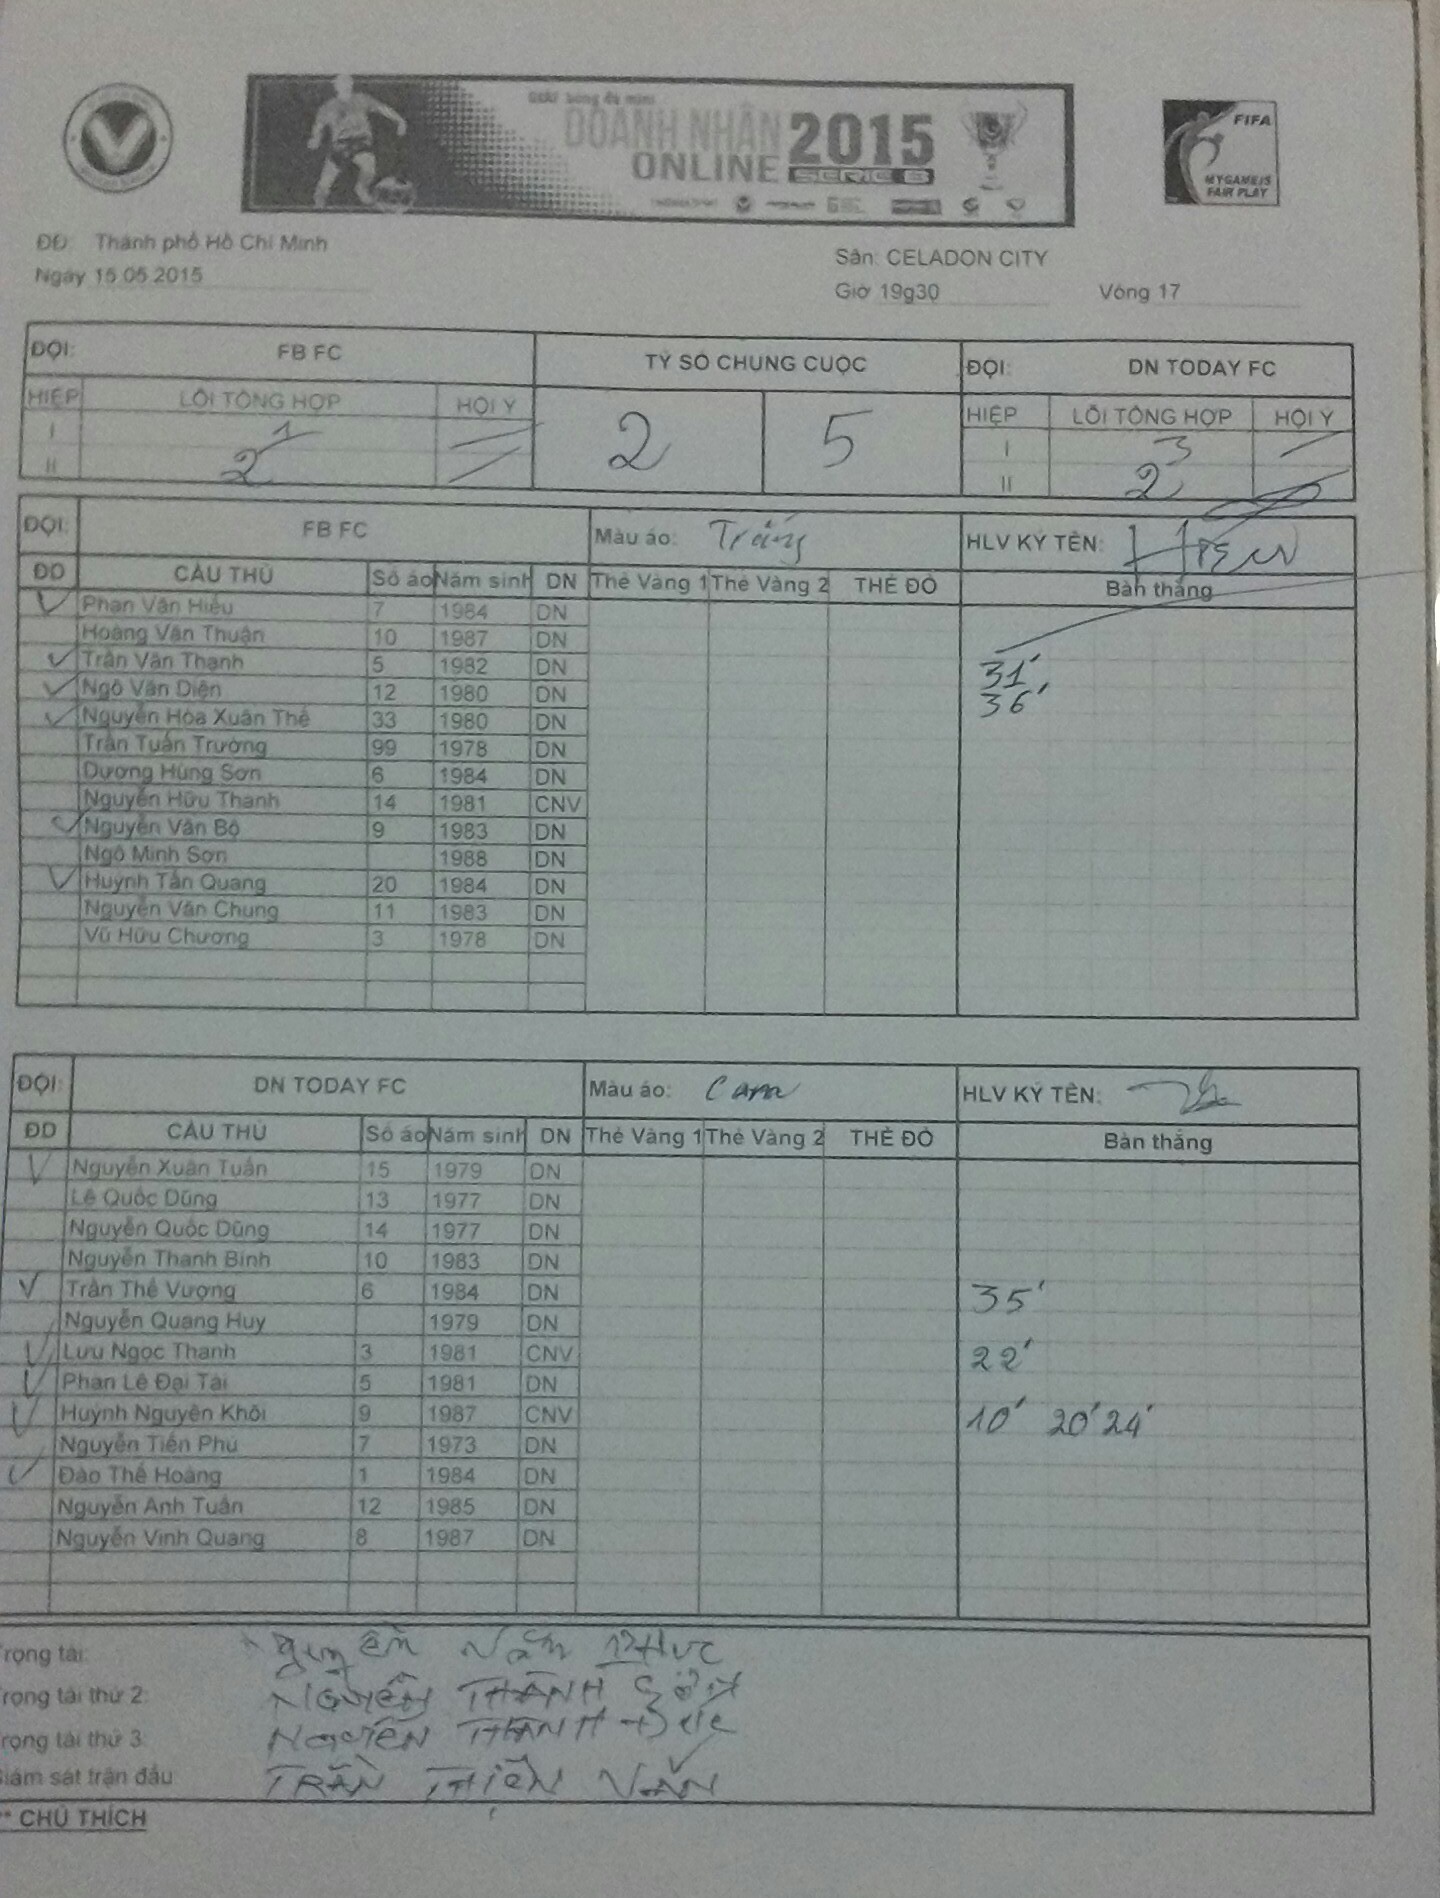 GIẢI bóng đá mini
DOANH NHÂN 2015
ONLINE SERIE B
FIFA
MY GAME IS
FAIR PLAY
ĐĐ: Thành phố Hồ Chí Minh
Ngày 15.05.2015
Sân: CELADON CITY
Giờ 19g30 Vòng 17
ĐỘI: FB FC TỶ SỐ CHUNG CUỘC ĐỘI: DN TODAY FC
HIỆP LỖI TỔNG HỢP HỘI Ý 2 5 HIỆP LỖI TỔNG HỢP HỘI Ý
I 1 I 3
II 2 II 2
ĐỘI: FB FC Màu áo: Trắng HLV KÝ TÊN:
ĐD CẦU THỦ Số áo Năm sinh DN Thẻ Vàng 1 Thẻ Vàng 2 THẺ ĐỎ Bàn thắng
Phan Văn Hiếu 7 1984 DN
Hoàng Văn Thuận 10 1987 DN
Trần Văn Thạnh 5 1982 DN 31'
Ngô Văn Diện 12 1980 DN 36'
Nguyễn Hóa Xuân Thế 33 1980 DN
Trần Tuấn Trường 99 1978 DN
Dương Hùng Sơn 6 1984 DN
Nguyễn Hữu Thanh 14 1981 CNV
Nguyễn Văn Bộ 9 1983 DN
Ngô Minh Sơn 1988 DN
Huỳnh Tấn Quang 20 1984 DN
Nguyễn Văn Chung 11 1983 DN
Vũ Hữu Chương 3 1978 DN
ĐỘI: DN TODAY FC Màu áo: Cam HLV KÝ TÊN:
ĐD CẦU THỦ Số áo Năm sinh DN Thẻ Vàng 1 Thẻ Vàng 2 THẺ ĐỎ Bàn thắng
Nguyễn Xuân Tuấn 15 1979 DN
Lê Quốc Dũng 13 1977 DN
Nguyễn Quốc Dũng 14 1977 DN
Nguyễn Thanh Bình 10 1983 DN
Trần Thế Vượng 6 1984 DN 35'
Nguyễn Quang Huy 1979 DN
Lưu Ngọc Thanh 3 1981 CNV 22'
Phan Lê Đại Tài 5 1981 DN
Huỳnh Nguyên Khôi 9 1987 CNV 10' 20' 24'
Nguyễn Tiến Phú 7 1973 DN
Đào Thế Hoàng 1 1984 DN
Nguyễn Anh Tuấn 12 1985 DN
Nguyễn Vinh Quang 8 1987 DN
rọng tài: Nguyễn Văn
rọng tài thứ 2: NGUYỄN THÀNH
rọng tài thứ 3: NGUYỄN THÀNH
iám sát trận đấu: TRẦN THIỆN VĂN
** CHÚ THÍCH